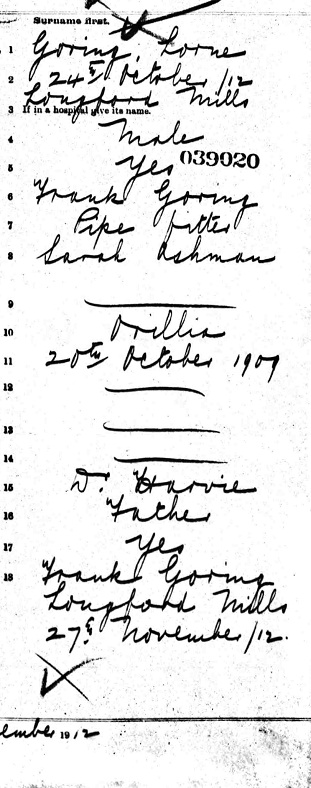 Surname first.
1 Goring, Lorne
2 24th October /12
Longford Mills
3 If in a hospital give its name.
4 Male
5 Yes 039020
6 Frank Goring
7 Pipe fitter
8 Sarah Ashman
9
10 Orillia
11 20th October 1909
12
13
14
15 Dr Harvie
16 Father
17 Yes
18 Frank Goring
Longford Mills
27th November /12.
ember 1912